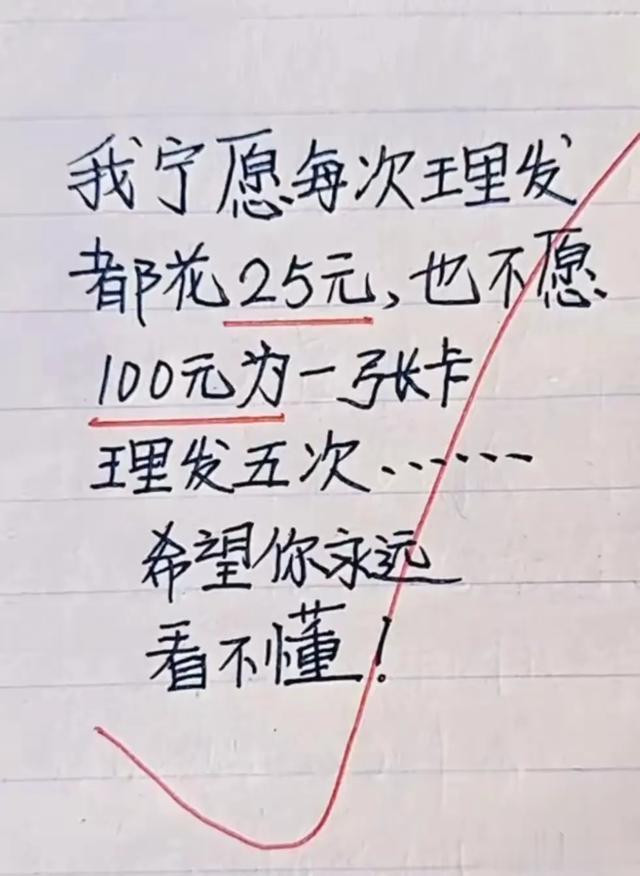 我宁愿每次理发
都花25元,也不愿
100元为一张卡
理发五次……
希望你永远
看不懂!